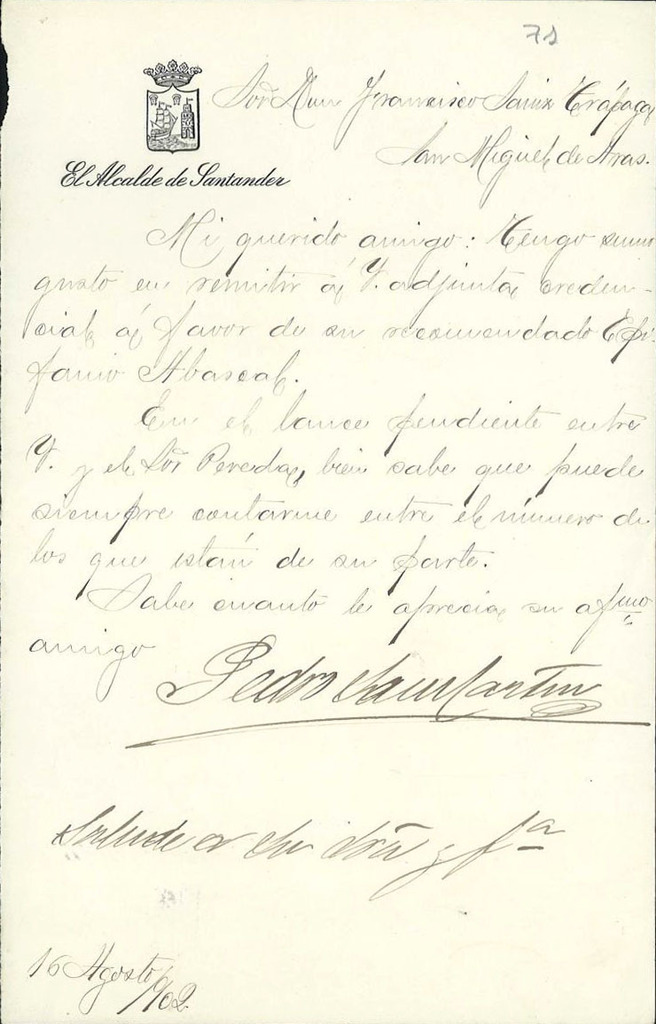 71
Sor Don Francisco Sainz Trápaga
San Miguel de Aras.
El Alcalde de Santander
Mi querido amigo: Tengo sumo
gusto en remitir á V. adjunta creden-
cial á favor de su recomendado Epi-
fanio Abascal.
En el lance pendiente entre
V. y el Sor Pereda, bien sabe que puede
siempre contarme entre el número de
los que están de su parte.
Sabe cuanto le aprecia su afmo
amigo
Pedro San Martin
Salude a su Sra y fa
16 Agosto/902